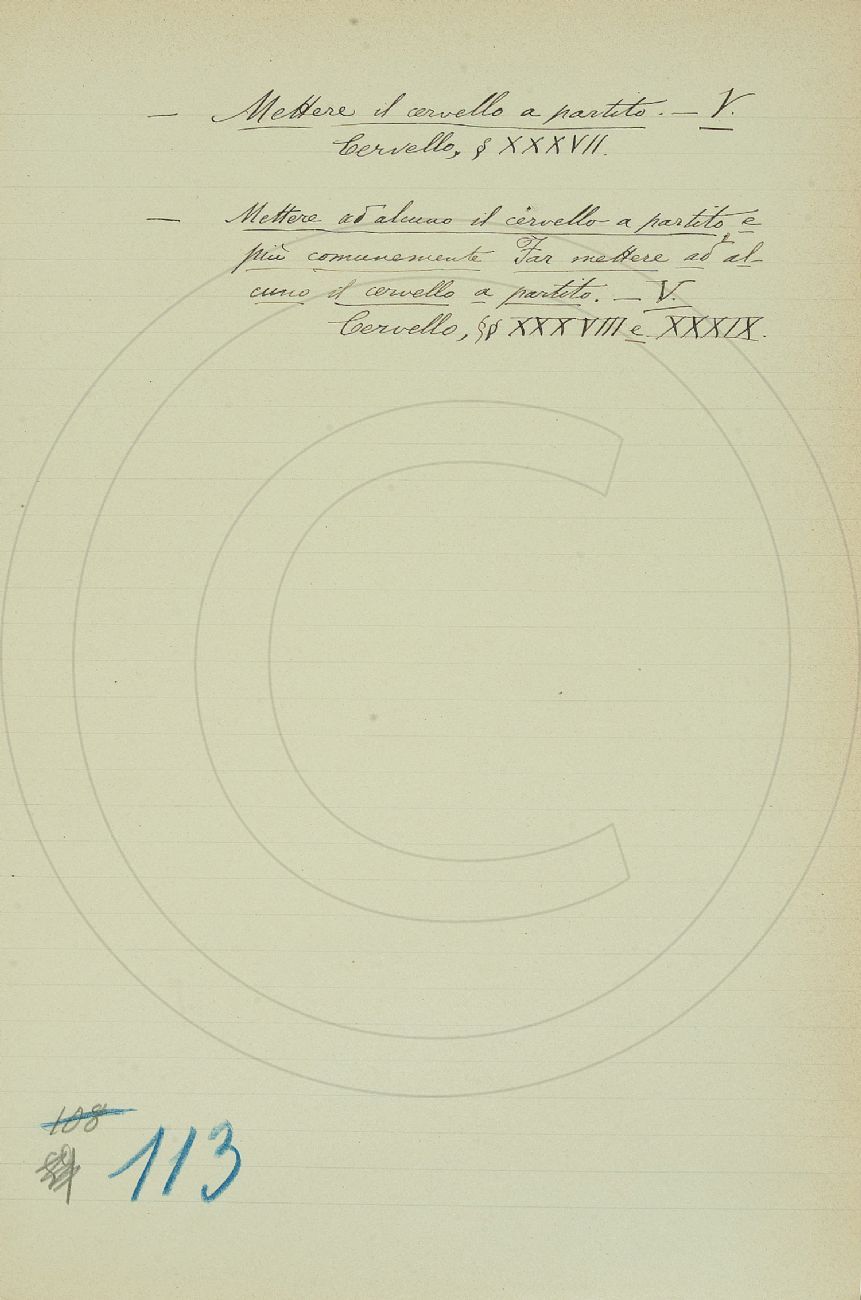 — Mettere il cervello a partito. — V.
Cervello, § XXXVII.
— Mettere ad alcuno il cervello a partito, e
più comunemente Far mettere ad al-
cuno il cervello a partito. — V.
Cervello, §§ XXXVIII e XXXIX.
108
113